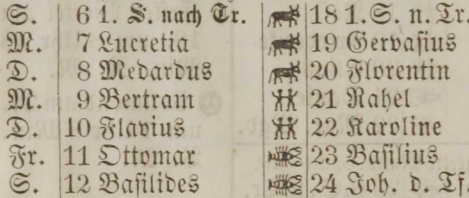 S. 6 1. S. nach Tr. 18 1. S. n. Tr.
M. 7 Lucretia 19 Gervasius
D. 8 Medardus 20 Florentin
M. 9 Bertram 21 Rahel
D. 10 Flavius 22 Karoline
Fr. 11 Ottomar 23 Basilius
S. 12 Basilides 24 Joh. d. Tf.